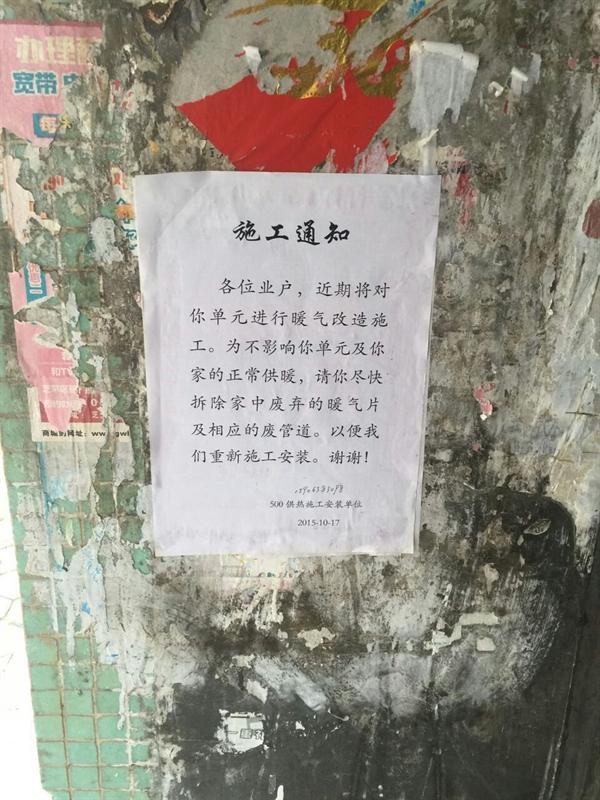 办理
宽带
优惠
施工通知
各位业户，近期将对
你单元进行暖气改造施
工。为不影响你单元及你
家的正常供暖，请你尽快
拆除家中废弃的暖气片
及相应的废管道。以便我
们重新施工安装。谢谢！
500供热施工安装单位
2015-10-17
商城的网址：